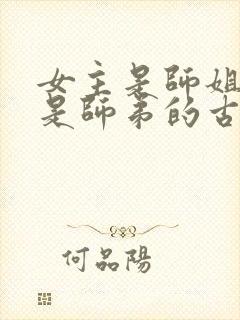 女主是師姐
是師弟的古
何品陽